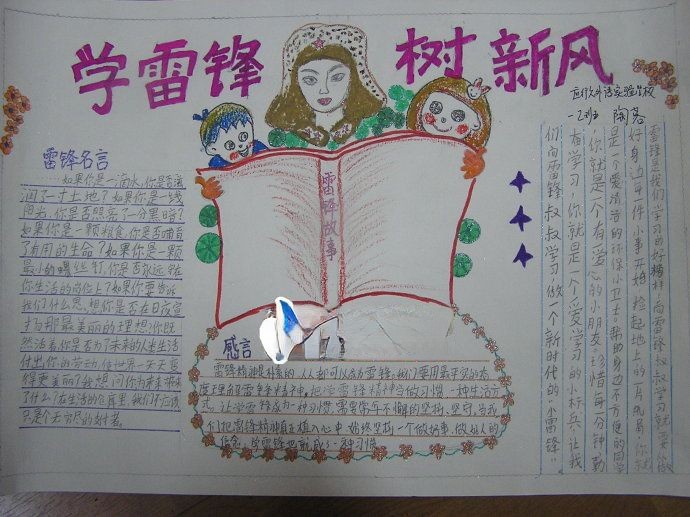 学雷锋 树新风
应外外语实验学校
陶亮
雷锋名言
如果你是一滴水,你是否滋
润了一寸土地?如果你是一线
阳光,你是否照亮了一分黑暗?
如果你是一颗粮食,你是否哺育
了有用的生命?如果你是一颗
最小的螺丝钉,你是否永远
你生活的岗位上?如果你要告诉
我们什么思想,你是否在日夜宣
扬那最美丽的理想?你既
然活着,你是否为了未来的人类生活
付出你的劳动,使世界一天天变
得更美丽?我想问你,为未来带来
了什么?在生活的仓库里,我们不应该
只是个无穷尽的支付者。
雷锋故事
感言
雷锋精神是朴素的,人人都可以成为雷锋。我们要用最平实的态
度理解雷锋精神,把学雷锋精神当做习惯,一种生活方
式。让学雷锋成为一种习惯,需要常年不懈的坚持,坚守,当我
们把雷锋精神真正植入心中,始终坚持一个做好事,做好人的
信念,学雷锋也就成了一种习惯
雷锋是我们学习的好榜样,向雷锋叔叔学习就要从做
好身边每一件小事开始,捡起地上的一片纸屑,你就
是一个爱清洁的环保小卫士;帮助身边不方便的同学
,你就是一个有爱心的小朋友;珍惜每一分钟勤
奋学习,你就是一个爱学习的小标兵,让我
们向雷锋叔叔学习,做一个新时代的"小雷锋"